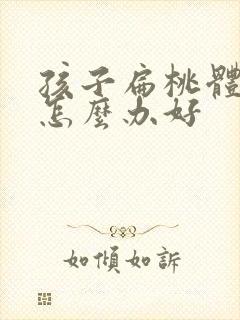 孩子扁桃體
怎麼办好
如傾如訴